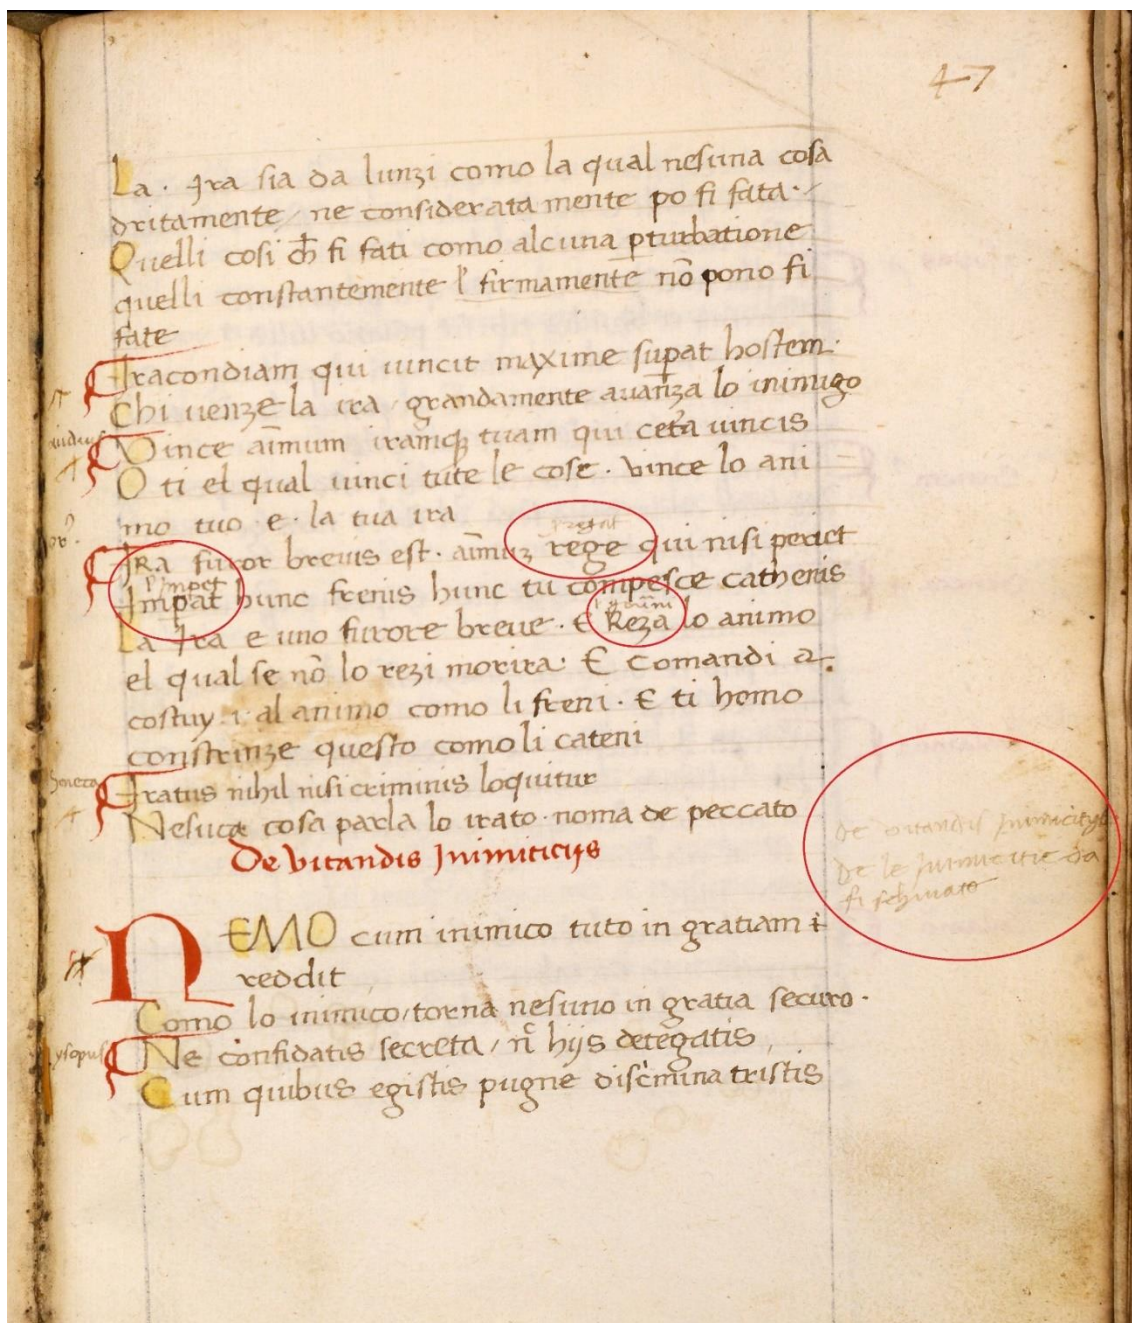 47
La . Ira sia da lunzi como la qual nesuna cosa
dritamente / ne considerata mente po fi fata .
Quelli cosi ch̄ fi fati como alcuna ꝑturbatione
quelli constantemente firmamente nō pono fi
fate
Iracondiam qui uincit maxime suꝑat hostem .
Chi uenze la ira / grandamente auanza lo inimigo
Vince aīmum iramqꝫ tuam qui cetā uincis
O ti el qual uinci tute le cose . vince lo ani
mo tuo . e . la tua ira
IRa furor breuis est . aīmuꝫ rege qui nisi peruet
Imꝑat hunc frenis hunc tu compesce cathenis
La Ira e uno furore breue . E Reza lo animo
el qual se nō lo rezi morira . E Comandi a
costuy . i . al animo como li freni . E ti homo
constrinze questo como li cateni
Iratus nihil nisi criminis loquitur
Nesuna cosa parla lo irato . noma de peccato
De vitandis Inimiticijs
De vitandis Inimicitijs
De le fi schiuato
NEMO cum inimico tuto in gratiam
reddit
Como lo inimico / torna nesuno in gratia securo .
ysopus
Ne confidatis secreta / hijs detegatis
Cum quibus egistis pugne disc̄mina tristis